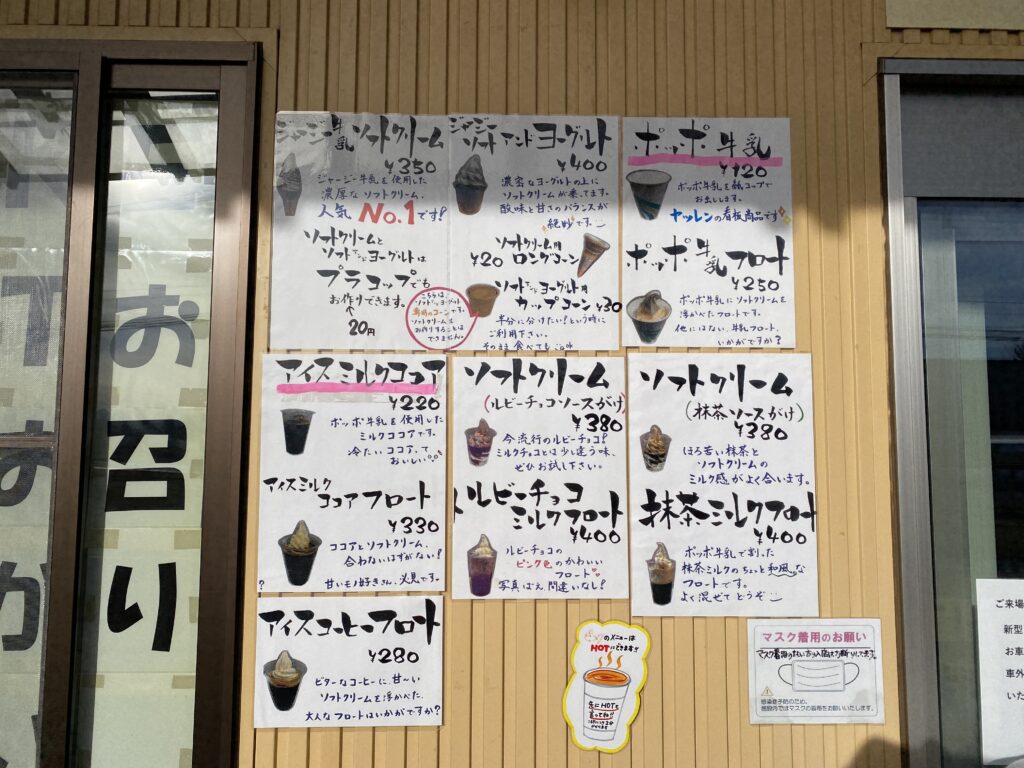 ジャージー牛乳ソフトクリーム
¥350
ジャージー牛乳を使用した
濃厚なソフトクリーム。
人気No.1です!
ソフトクリームと
ソフトアンドヨーグルトは
プラコップでも
お作りできます。
20円
ジャージーソフトアンドヨーグルト
¥400
濃密なヨーグルトの上に
ソフトクリームが乗ってます。
酸味と甘さのバランスが
絶妙です
ソフトクリーム用
¥20 ロングコーン
ソフトアンドヨーグルト用
カップコーン ¥30
半分に分けたい!という時に
ご利用下さい。
そのまま食べても
こちらは、
ソフトアンドヨーグルト
専用のコーンです。
ソフトクリームは
お作りすることは
できません
ポッポ牛乳
¥120
ポッポ牛乳を紙コップで
お出しします。
ヤツレンの看板商品です
ポッポ牛乳フロート
¥250
ポッポ牛乳にソフトクリームを
浮かべたフロート。
他にはない、牛乳フロート、
いかがですか?
アイスミルクココア
¥220
ポッポ牛乳を使用した
ミルクココアです。
冷たいココアって
おいしい
アイスミルク
ココアフロート
¥330
ココアとソフトクリーム、
合わないはずがない!
甘いモノ好きさん、必見です。
ソフトクリーム
(ルビーチョコソースがけ)
¥380
今流行のルビーチョコ!
ミルクチョコとは少し違う味、
ぜひお試し下さい。
ルビーチョコ
ミルクフロート
¥400
ルビーチョコの
ピンク色のかわいい
フロート
写真ばえ間違いなし!
ソフトクリーム
(抹茶ソースがけ)
¥380
ほろ苦い抹茶と
ソフトクリームの
ミルク感がよく合います。
抹茶ミルクフロート
¥400
ポッポ牛乳で割った
抹茶ミルクのちょっと和風な
フロートです。
よく混ぜてどうぞ
アイスコーヒーフロート
¥280
ビターなコーヒーに、甘〜い
ソフトクリームを浮かべた、
大人なフロートはいかがですか?
のメニューは
HOTにできます!!
先にHOTと
言ってね!!
マスク着用のお願い
感染症予防のため、
施設内ではマスクの着用をお願いいたします。
ご来場
新型
お車
車外
いた
お
召
り